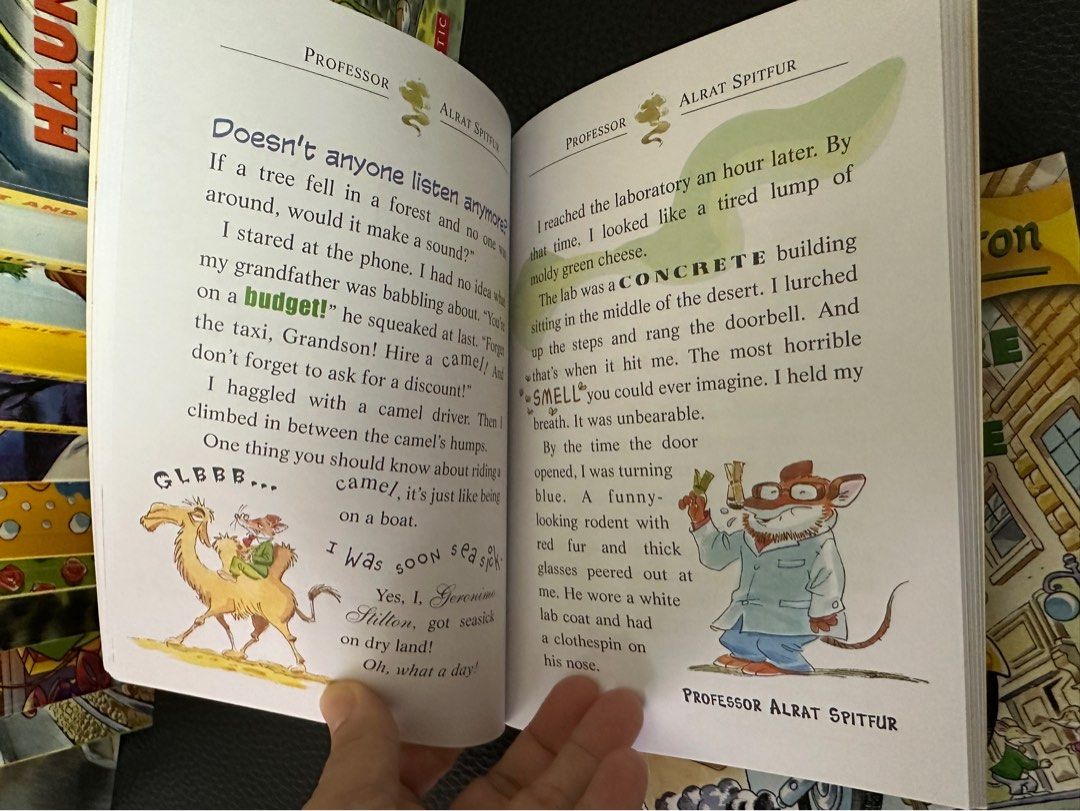 HAUN
TIC
PROFESSOR ALRAT SPITFUR
Doesn't anyone listen anymore?
If a tree fell in a forest and no one was
around, would it make a sound?"
I stared at the phone. I had no idea what
my grandfather was babbling about. "You're
on a budget!" he squeaked at last. "Forget
the taxi, Grandson! Hire a camel! And
don't forget to ask for a discount!"
I haggled with a camel driver. Then I
climbed in between the camel's humps.
One thing you should know about riding a
camel, it's just like being
on a boat.
GLBBB...
I was soon seasick.
Yes, I, Geronimo
Stilton, got seasick
on dry land!
Oh, what a day!
PROFESSOR ALRAT SPITFUR
I reached the laboratory an hour later. By
that time. I looked like a tired lump of
moldy green cheese.
The lab was a CONCRETE building
sitting in the middle of the desert. I lurched
up the steps and rang the doorbell. And
that's when it hit me. The most horrible
SMELL you could ever imagine. I held my
breath. It was unbearable.
By the time the door
opened, I was turning
blue. A funny-
looking rodent with
red fur and thick
glasses peered out at
me. He wore a white
lab coat and had
a clothespin on
his nose.
PROFESSOR ALRAT SPITFUR
ton
KE
E